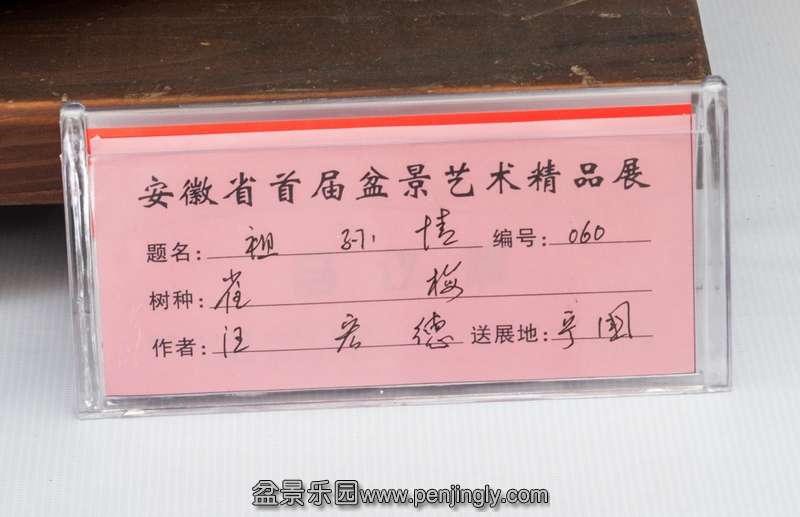 安徽省首届盆景艺术精品展
题名: 祖孙情 编号: 060
树种: 雀梅
作者: 汪宏德 送展地: 宁国
盆景乐园www.penjingly.com